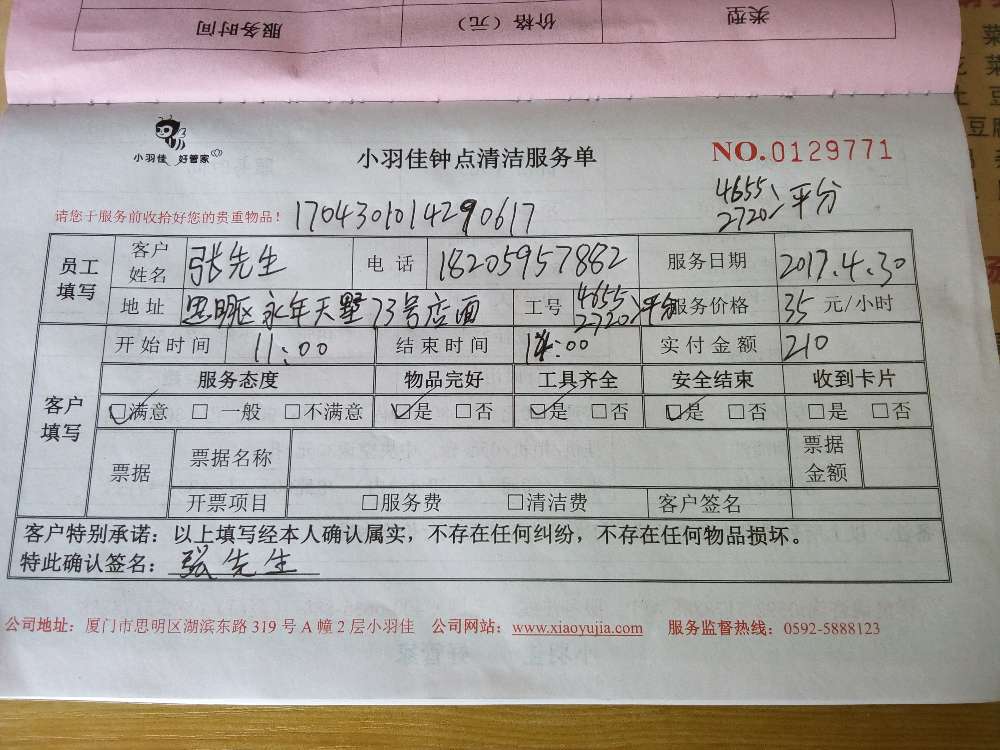 服务时间 价格（元） 类型
菜
菜
豆
小羽佳 好管家
小羽佳钟点清洁服务单
NO.0129771
4655
2720 平分
请您于服务前收拾好您的贵重物品！ 1704301014290617
员工填写 客户姓名 张先生 电话 18205957882 服务日期 2017.4.30
地址 思明区永年天墅73号店面 工号 4655 2720 平分 服务价格 35 元/小时
客户填写 开始时间 11:00 结束时间 14:00 实付金额 210
服务态度 物品完好 工具齐全 安全结束 收到卡片
☑满意 □一般 □不满意 ☑是 □否 ☑是 □否 ☑是 □否 □是 □否
票据 票据名称 票据金额
开票项目 □服务费 □清洁费 客户签名
客户特别承诺：以上填写经本人确认属实，不存在任何纠纷，不存在任何物品损坏。
特此确认签名：张先生
公司地址：厦门市思明区湖滨东路 319 号 A 幢 2 层小羽佳 公司网站：www.xiaoyujia.com 服务监督热线：0592-5888123